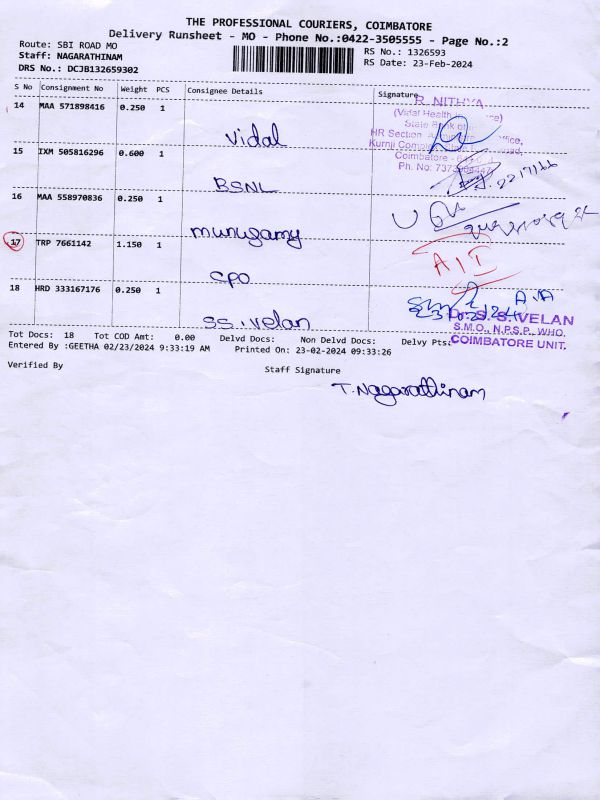 THE PROFESSIONAL COURIERS, COIMBATORE
Delivery Runsheet - MO - Phone No.:0422-3505555 - Page No.:2
Route: SBI ROAD MO
RS No.: 1326593
Staff: NAGARATHINAM
RS Date: 23-Feb-2024
DRS No.: DCJB132659302
S No Consignment No Weight PCS Consignee Details Signature
14 MAA 571898416 0.250 1
R. NITHYA
(Vidal Health
State Bank of
HR Section
Coimbatore
Ph. No: 737
Vidal
15 IXM 505816296 0.600 1
BSNL
16 MAA 558970836 0.250 1
murugamy
17 TRP 7661142 1.150 1
AII
CPO
18 HRD 333167176 0.250 1
SS.Velan
Dr. S. S. VELAN
S.M.O., N.P.S.P., WHO.
COIMBATORE UNIT.
Tot Docs: 18 Tot COD Amt: 0.00 Delvd Docs: Non Delvd Docs: Delvy Pts:
Entered By :GEETHA 02/23/2024 9:33:19 AM Printed On: 23-02-2024 09:33:26
Verified By Staff Signature
T. Nagarathinam